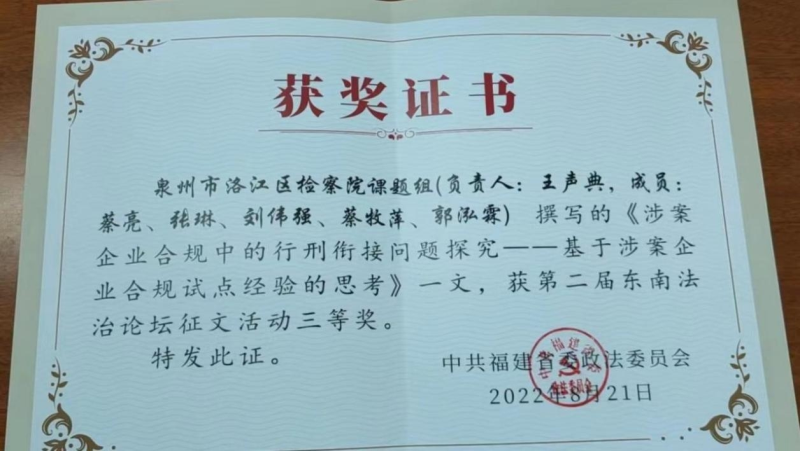 获奖证书
泉州市洛江区检察院课题组(负责人：王声典，成员：
蔡亮、张琳、刘伟强、蔡牧萍、郭泓霖) 撰写的《涉案
企业合规中的行刑衔接问题探究——基于涉案企
业合规试点经验的思考》一文，获第二届东南法
治论坛征文活动三等奖。
特发此证。
中共福建省委政法委员会
2022年8月21日